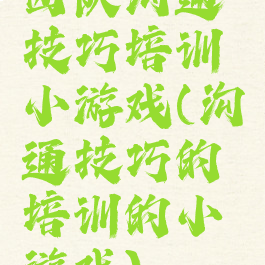 团队沟通
技巧培训
小游戏(沟
通技巧的
培训的小
游戏)